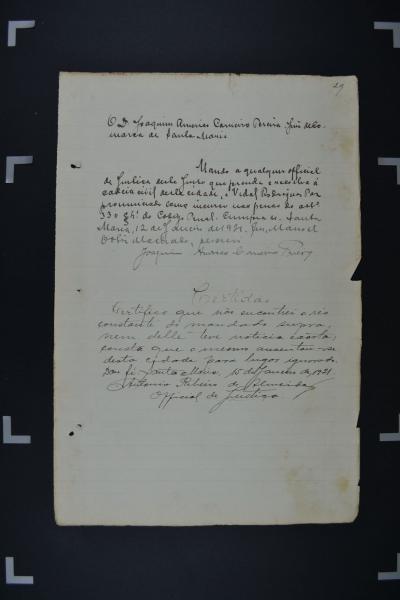 29
O D.r Joaquim Americo Carneiro Pereira Juiz de Co-
marca de Santa Maria
Mando a qualquer official
de Justiça deste Juizo que prenda e recolha á
cadeia civil desta cidade, o Vidal Rodrigues Por
pronunciado como incurso nas penas do art.º
330 § 4.º do Codigo Penal. Cumpra-se. Santa
Maria, 12 de Janeiro de 1921. Eu, Manoel
Machado, escrevi
Joaquim Americo Carneiro Pereira
Certidão
Certifico que não encontrei o réo
constante do mandado supra,
nem delle tive noticia exacta,
consta que o mesmo ausentou-se
desta cidade para lugar ignorado.
Dou fé Santa Maria, 15 de Janeiro de 1921.
Antonio Ribeiro de Almeida
Official de Justiça